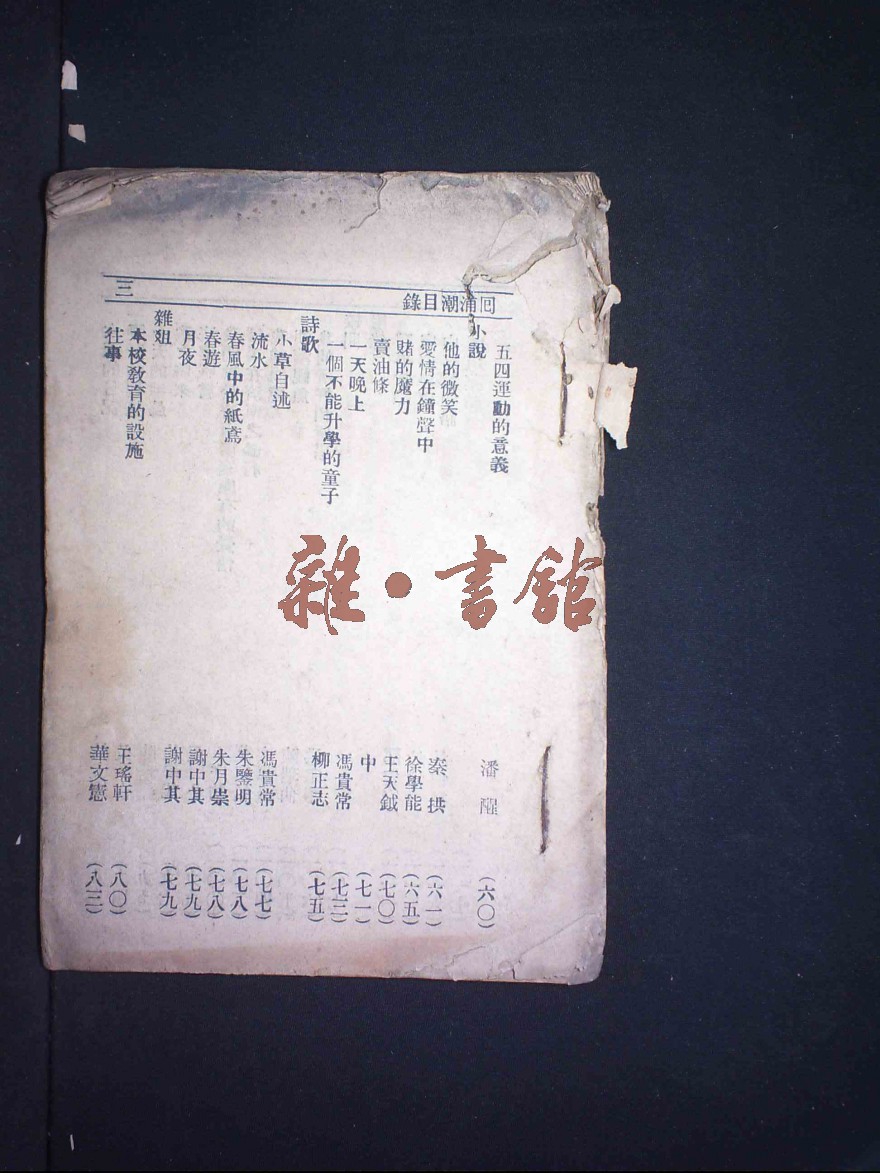 囘浦潮目錄
三
五四運動的意義 潘醒 (六〇)
小說
他的微笑 秦拱 (六一)
愛情在鐘聲中 徐學能 (六五)
賭的魔力 王天鉞 (七〇)
賣油條 中 (七一)
一天晚上 馮貴常 (七三)
一個不能升學的童子 柳正志 (七五)
詩歌
小草自述 馮貴常 (七七)
流水 朱鑒明 (七八)
春風中的紙鳶 朱月崇 (七八)
春遊 謝中其 (七九)
月夜 謝中其 (七九)
雜俎
本校敎育的設施 王瑤軒 (八〇)
往事 華文憲 (八三)
雜·書館